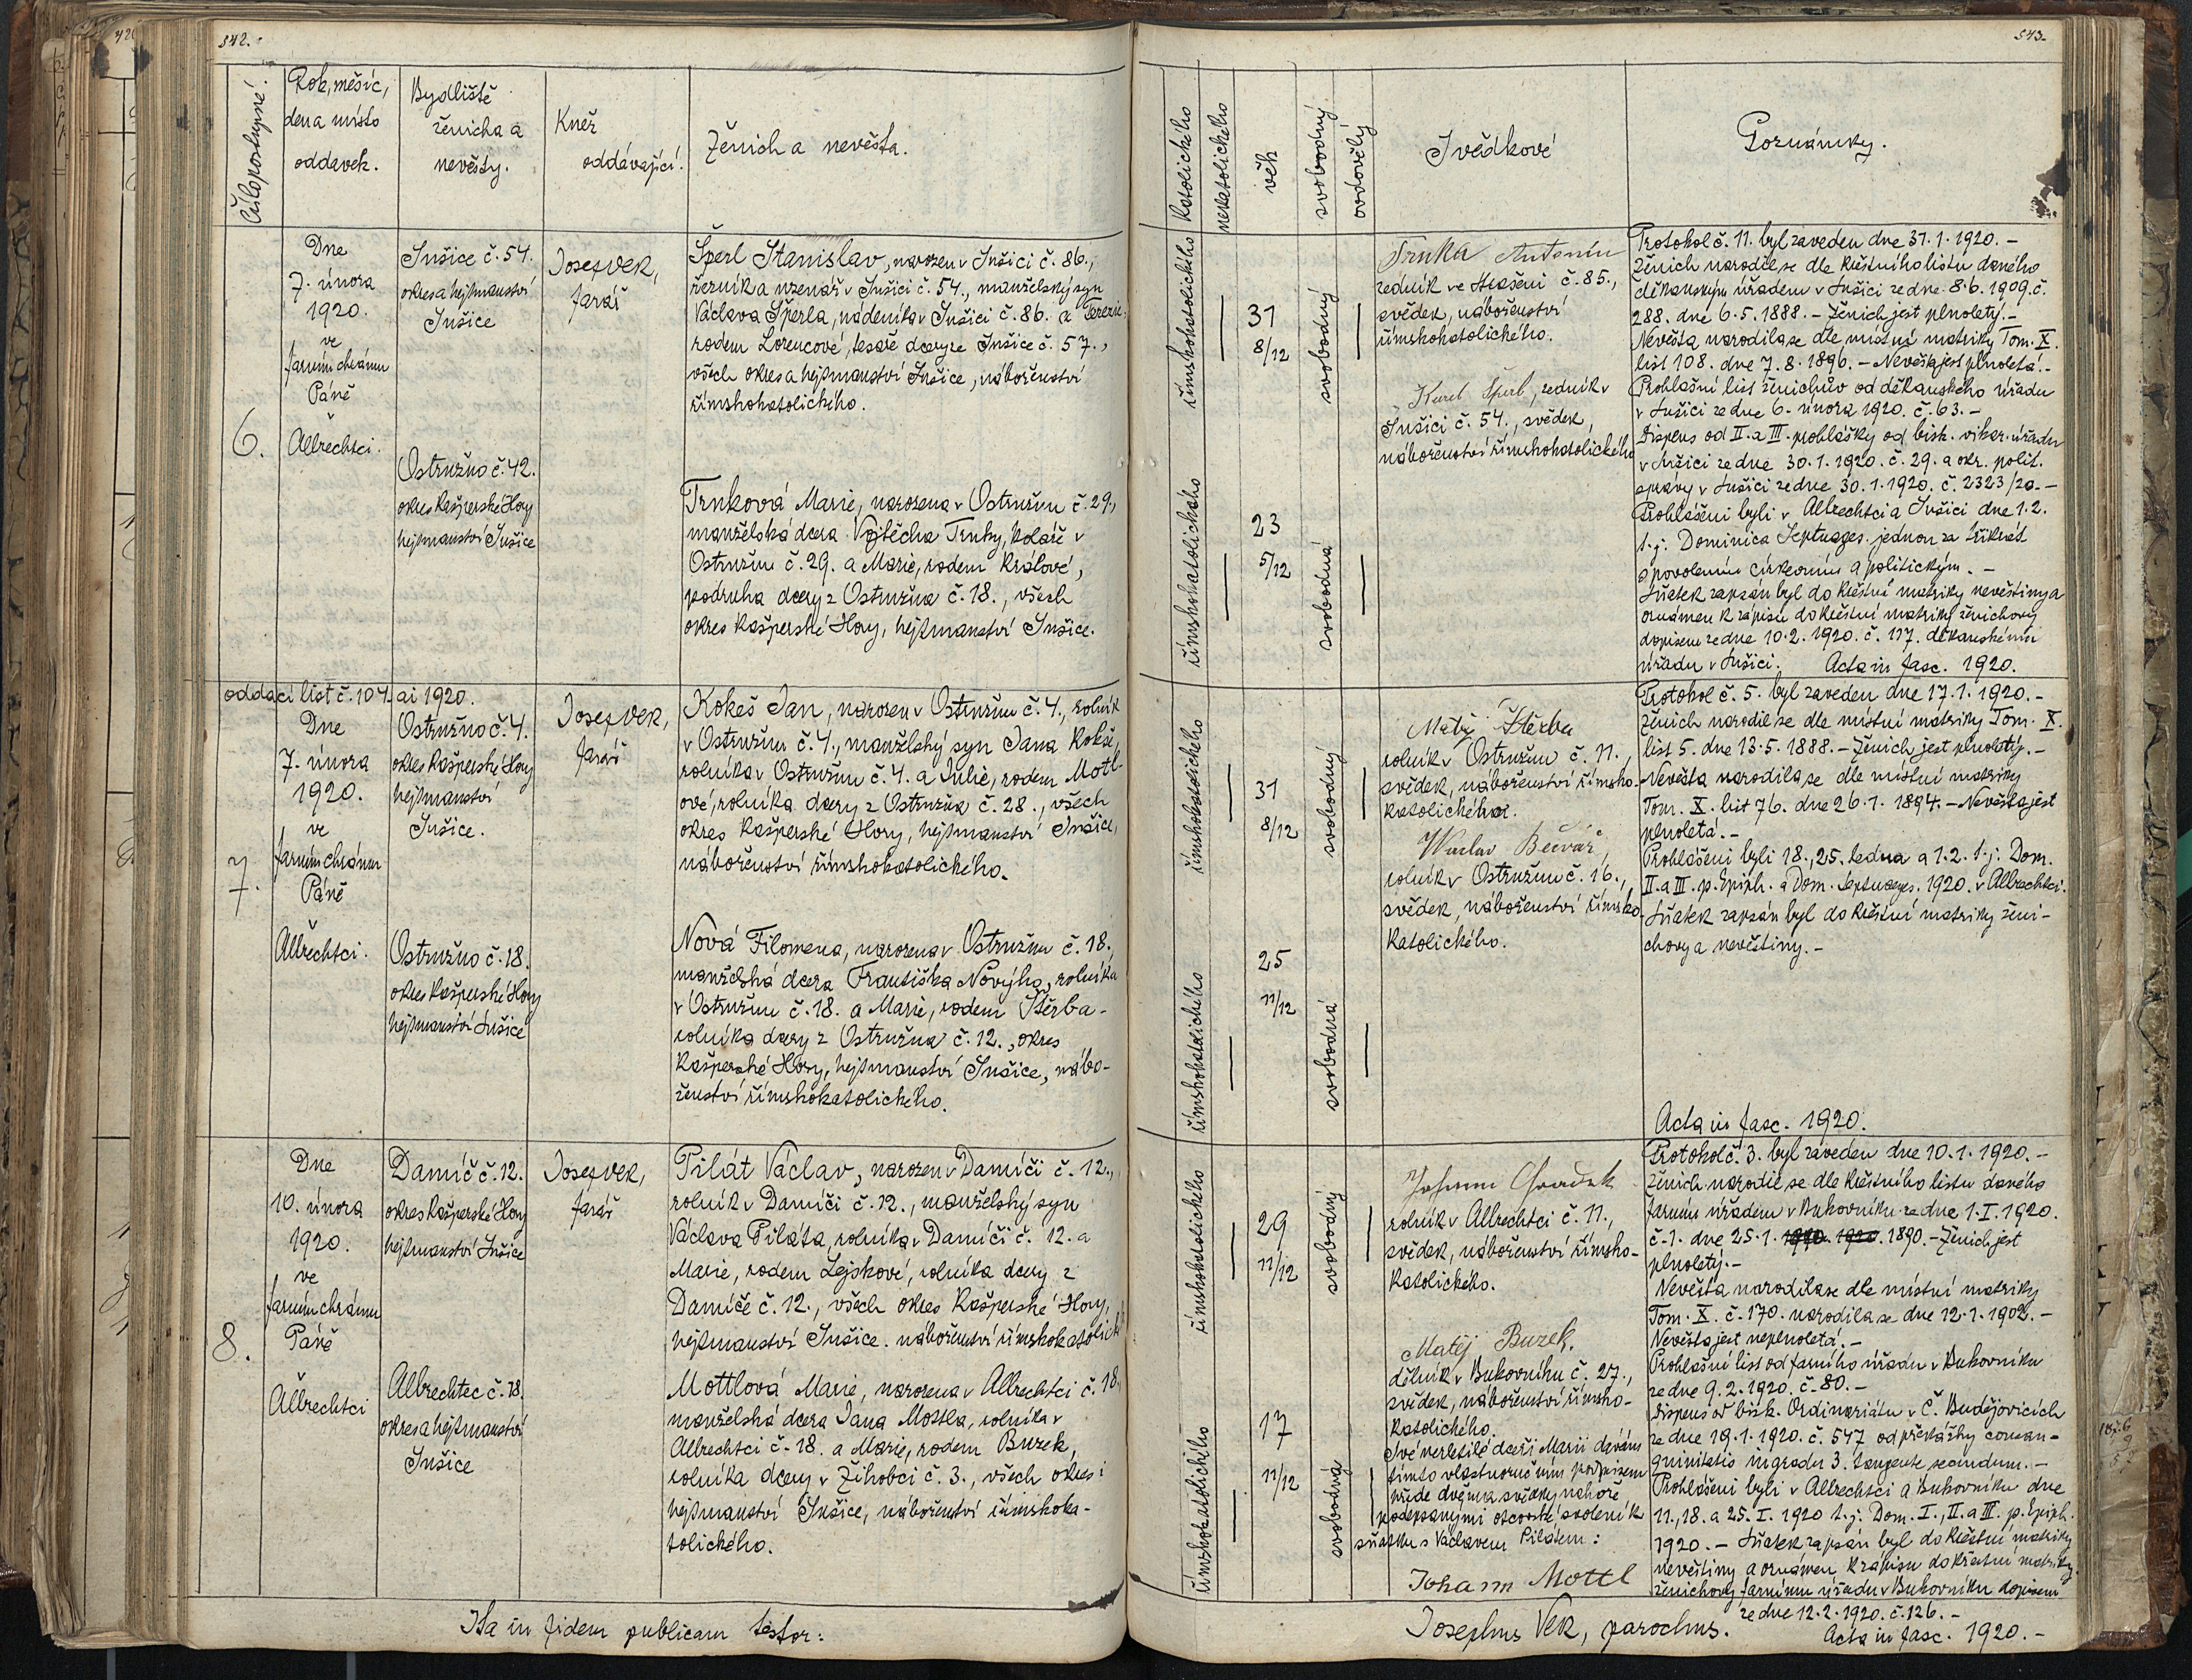 542.
543.
Číslo postupné.
Rok, měsíc,
den a místo
oddavek.
Bydliště
ženicha a
nevěsty.
Kněz
oddávající.
Ženich a nevěsta.
katolického
nekatolického
věk
svobodný
ovdovělý
Svědkové
Poznámky.
6.
Dne
7. února
1920.
ve
farním chrámu
Páně
Albrechtci.
Sušice č. 54.
okres a hejtmanství
Sušice
Ostružno č. 42.
okres Kašperské Hory
hejtmanství Sušice
Josef Vek,
farář
Šperl Stanislav, narozen v Sušici č. 86.,
řezník a uzenář v Sušici č. 54., manželský syn
Václava Šperla, nádeníka v Sušici č. 86. a Terezie
rodem Lorencové, tesaře dcery ze Sušice č. 57.,
všech okres a hejtmanství Sušice, náboženství
římskokatolického.
Trnková Marie, narozena v Ostružnu č. 29.,
manželská dcera Vojtěcha Trnky, koláře v
Ostružnu č. 29. a Marie, rodem Králové,
podruha dcery z Ostružna č. 18., všech
okres Kašperské Hory, hejtmanství Sušice.
římskokatolického
31
8/12
svobodný
římskokatolického
23
5/12
svobodná
Trnka Antonín
zedník ve Strašeni č. 85.,
svědek, náboženství
římskokatolického.
Karel Šperl, zedník v
Sušici č. 54., svědek,
náboženství římskokatolického
Protokol č. 11. byl zaveden dne 31. 1. 1920. –
Ženich narodil se dle křestního listu daného
děkanským úřadem v Sušici ze dne 8. 6. 1909. č.
288. dne 6. 5. 1888. – Ženich jest plnoletý. –
Nevěsta narodila se dle místní matriky Tom. X.
list 108. dne 7. 8. 1896. – Nevěsta jest plnoletá. –
Prohlašní list ženichův od děkanského úřadu
v Sušici ze dne 6. února 1920. č. 63. –
Dispens od II. a III. prohlášky od bisk. vikar. úřadu
v Sušici ze dne 30. 1. 1920. č. 29. a okr. polit.
správy v Sušici ze dne 30. 1. 1920. č. 2323/20. –
Prohlášeni byli v Albrechtci a Sušici dne 1. 2.
t. j. Dominica Septuages. jednou za třikrát
s povolením církevním a politickým. –
Sňatek zapsán byl do křestní matriky nevěstiny a
oznámen k zápisu do křestní matriky ženichovy
dopisem ze dne 10. 2. 1920. č. 117. děkanskému
úřadu v Sušici. Acta in fasc. 1920.
oddací list č. 104 ai 1920.
7.
Dne
7. února
1920.
ve
farním chrámu
Páně
Albrechtci.
Ostružno č. 4.
okres Kašperské Hory
hejtmanství
Sušice.
Ostružno č. 18.
okres Kašperské Hory
hejtmanství Sušice
Josef Vek,
farář
Kokeš Jan, narozen v Ostružnu č. 4., rolník
v Ostružnu č. 4., manželský syn Jana Kokše,
rolníka v Ostružnu č. 4. a Julie, rodem Mottl-
ové, rolníka dcery z Ostružna č. 28., všech
okres Kašperské Hory, hejtmanství Sušice,
náboženství římskokatolického.
Nová Filomena, narozena v Ostružnu č. 18.,
manželská dcera Františka Nového, rolníka
v Ostružnu č. 18. a Marie, rodem Štěrba-
rolníka dcery z Ostružna č. 12., okres
Kašperské Hory, hejtmanství Sušice, nábo-
ženství římskokatolického.
římskokatolického
31
8/12
svobodný
římskokatolického
25
11/12
svobodná
Matěj Štěrba
rolník v Ostružnu č. 11.,
svědek, náboženství římsko-
katolického.
Václav Bečvář,
rolník v Ostružnu č. 16.,
svědek, náboženství římsko-
katolického.
Protokol č. 5. byl zaveden dne 17. 1. 1920. –
Ženich narodil se dle místní matriky Tom. X.
list 5. dne 13. 5. 1888. – Ženich jest plnoletý. –
Nevěsta narodila se dle místní matriky
Tom. X. list 76. dne 26. 1. 1894. – Nevěsta jest
plnoletá. –
Prohlášeni byli 18., 25. ledna a 1. 2. t. j. Dom.
II. a III. p. Epiph. a Dom. Septuages. 1920. v Albrechtci.
Sňatek zapsán byl do křestní matriky ženi-
chovy a nevěstiny. –
Acta in fasc. 1920.
8.
Dne
10. února
1920.
ve
farním chrámu
Páně
Albrechtci
Damíč č. 12.
okres Kašperské Hory
hejtmanství Sušice
Albrechtec č. 18.
okres a hejtmanství
Sušice
Josef Vek,
farář
Pilát Václav, narozen v Damíči č. 12.,
rolník v Damíči č. 12., manželský syn
Václava Piláta, rolníka v Damíči č. 12. a
Marie, rodem Lejskové, rolníka dcery z
Damíče č. 12., všech okres Kašperské Hory,
hejtmanství Sušice. náboženství římskokatolick.
Mottlová Marie, narozena v Albrechtci č. 18.
manželská dcera Jana Mottla, rolníka v
Albrechtci č. 18. a Marie, rodem Burek,
rolníka dcery v Žihobci č. 3., všech okres i
hejtmanství Sušice, náboženství římskoka-
tolického.
římskokatolického
29
11/12
svobodný
římskokatolického
17
11/12
svobodná
Johann
rolník v Albrechtci č. 11.,
svědek, náboženství římsko-
katolického.
Matěj Burek,
dělník v Bukovníku č. 27.,
svědek, náboženství římsko-
katolického.
Své nezletilé dceři Marii dávám
tímto vlastnoručním podpisem
přede dvěma svědky nahoře
podepsanými otcovské svolení k
sňatku s Václavem Pilátem:
Johann Mottl
Protokol č. 3. byl zaveden dne 10. 1. 1920. –
Ženich narodil se dle křestního listu daného
farním úřadem v Bukovníku ze dne 1. I. 1920.
č. 1. dne 25. 1. 1890. – Ženich jest
plnoletý. –
Nevěsta narodila se dle místní matriky
Tom. X. č. 170. narodila se dne 12. 1. 1902. –
Nevěsta jest neplnoletá. –
Prohlašní list od farního úřadu v Bukovníku
ze dne 9. 2. 1920. č. 80. –
Dispens od bisk. Ordinariátu v Č. Budějovicích
ze dne 19. 1. 1920. č. 547 od překážky consan-
guinitatis in gradu 3. tangente secundum. –
Prohlášeni byli v Albrechtci a Bukovníku dne
11., 18. a 25. I. 1920 t. j. Dom. I., II. a III. p. Epiph.
1920. – Sňatek zapsán byl do křestní matriky
nevěstiny a oznámen k zápisu do křestní matriky
ženichovy farnímu úřadu v Bukovníku dopisem
ze dne 12. 2. 1920. č. 126. –
Acta in fasc. 1920. –
Ita in fidem publicam testor:
Josephus Vek, parochus.